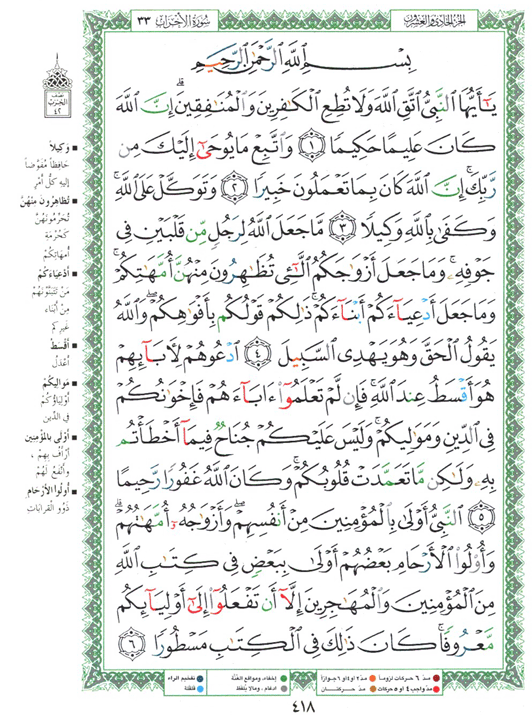 الجزء الحادي والعشرون
سُورَةُ الأَحْزَابِ ٣٣
بِسْمِ اللَّهِ الرَّحْمَٰنِ الرَّحِيمِ
يَٰٓأَيُّهَا ٱلنَّبِىُّ ٱتَّقِ ٱللَّهَ وَلَا تُطِعِ ٱلْكَٰفِرِينَ وَٱلْمُنَٰفِقِينَ ۗ إِنَّ ٱللَّهَ
كَانَ عَلِيمًا حَكِيمًا ١ وَٱتَّبِعْ مَا يُوحَىٰٓ إِلَيْكَ مِن
رَّبِّكَ ۚ إِنَّ ٱللَّهَ كَانَ بِمَا تَعْمَلُونَ خَبِيرًا ٢ وَتَوَكَّلْ عَلَى ٱللَّهِ ۚ
وَكَفَىٰ بِٱللَّهِ وَكِيلًا ٣ مَّا جَعَلَ ٱللَّهُ لِرَجُلٍ مِّن قَلْبَيْنِ فِى
جَوْفِهِۦ ۚ وَمَا جَعَلَ أَزْوَٰجَكُمُ ٱلَّٰٓـِٔى تُظَٰهِرُونَ مِنْهُنَّ أُمَّهَٰتِكُمْ ۚ
وَمَا جَعَلَ أَدْعِيَآءَكُمْ أَبْنَآءَكُمْ ۚ ذَٰلِكُمْ قَوْلُكُم بِأَفْوَٰهِكُمْ ۖ وَٱللَّهُ
يَقُولُ ٱلْحَقَّ وَهُوَ يَهْدِى ٱلسَّبِيلَ ٤ ٱدْعُوهُمْ لِءَابَآئِهِمْ
هُوَ أَقْسَطُ عِندَ ٱللَّهِ ۚ فَإِن لَّمْ تَعْلَمُوٓا۟ ءَابَآءَهُمْ فَإِخْوَٰنُكُمْ
فِى ٱلدِّينِ وَمَوَٰلِيكُمْ ۚ وَلَيْسَ عَلَيْكُمْ جُنَاحٌ فِيمَآ أَخْطَأْتُم
بِهِۦ وَلَٰكِن مَّا تَعَمَّدَتْ قُلُوبُكُمْ ۚ وَكَانَ ٱللَّهُ غَفُورًا رَّحِيمًا
٥ ٱلنَّبِىُّ أَوْلَىٰ بِٱلْمُؤْمِنِينَ مِنْ أَنفُسِهِمْ ۖ وَأَزْوَٰجُهُۥٓ أُمَّهَٰتُهُمْ ۗ
وَأُو۟لُوا۟ ٱلْأَرْحَامِ بَعْضُهُمْ أَوْلَىٰ بِبَعْضٍ فِى كِتَٰبِ ٱللَّهِ
مِنَ ٱلْمُؤْمِنِينَ وَٱلْمُهَٰجِرِينَ إِلَّآ أَن تَفْعَلُوٓا۟ إِلَىٰٓ أَوْلِيَآئِكُم
مَّعْرُوفًا ۚ كَانَ ذَٰلِكَ فِى ٱلْكِتَٰبِ مَسْطُورًا ٦
نصف
الحزب
٤٢
وَكِيلاً
حافِظاً مُفَوَّضاً
إليه كلُّ أمْرٍ
تُظَاهِرُونَ مِنْهُنَّ
تُحَرِّمُونَهُنَّ
كَحُرْمَةِ
أمهاتِكُمْ
أَدْعِيَاءَكُمْ
مَنْ تَتَبَنَّوْنَهُمْ
من أبناء
غيرِكم
أَقْسَطُ
أَعْدَلُ
مَوَالِيكُمْ
أَوْلِيَاؤُكُمْ
في الدِّين
أَوْلَى بِالْمُؤْمِنِينَ
أَرْأَفُ بِهِمْ ،
وَأَنْفَعُ لَهُمْ
أُولُوا الأَرْحَامِ
ذَوُو القَرَاباتِ
مدّ ٦ حركات لزوماً
مدّ ٢ أو ٤ أو ٦ جوازاً
إخفاء، ومواقع الغُنَّة
تفخيم الراء
مدّ واجب ٤ أو ٥ حركات
مدّ حركتان
ادغام ، ومالا يلفظ
قلقلة
٤١٨